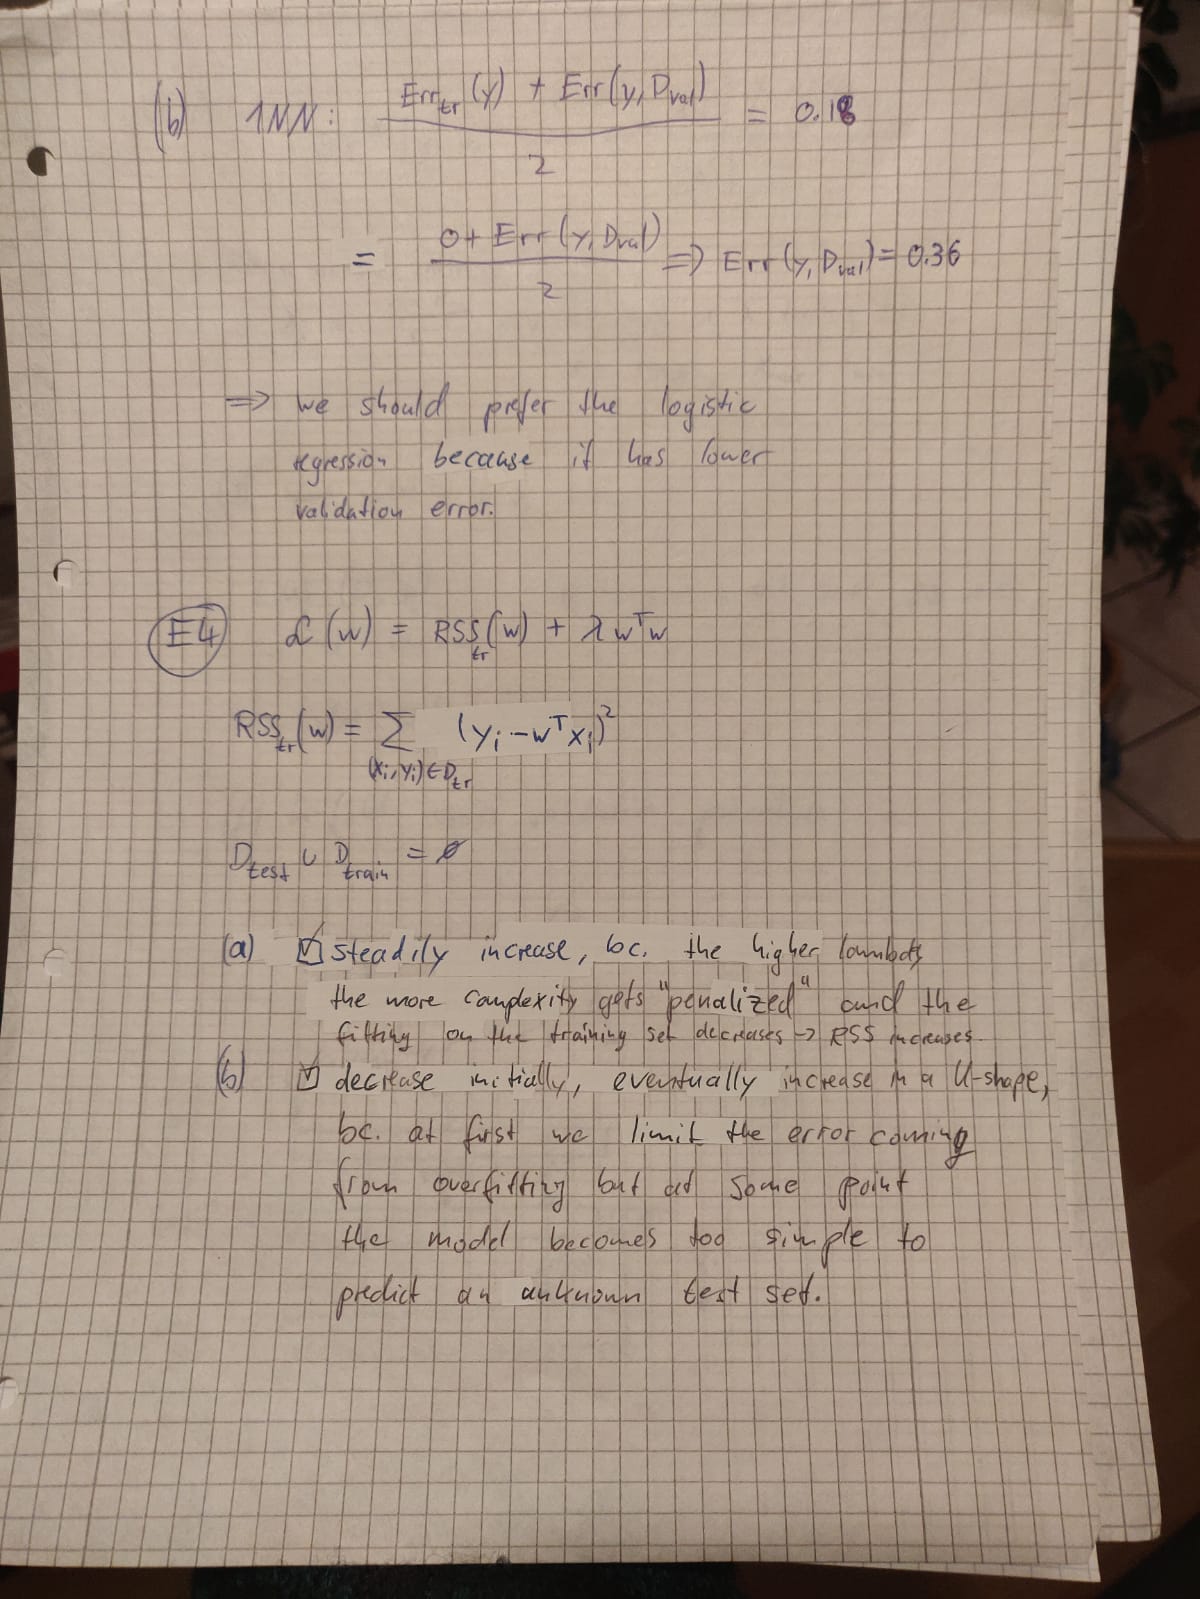 (b) 1NN: (Err_tr(y) + Err(y, D_val)) / 2 = 0.18
= (0 + Err(y, D_val)) / 2 ⇒ Err(y, D_val) = 0.36
⇒ we should prefer the logistic
regression because it has lower
validation error.
E4 L(w) = RSS_tr(w) + λ w^T w
RSS_tr(w) = Σ_{(x_i, y_i) ∈ D_tr} (y_i - w^T x_i)^2
D_test ∪ D_train = ∅
(a) ☑ steadily increase, bc. the higher lambda,
the more complexity gets "penalized" and the
fitting on the training set decreases → RSS increases.
(b) ☑ decrease initially, eventually increase in a U-shape,
bc. at first we limit the error coming
from overfitting but at some point
the model becomes too simple to
predict an unknown test set.